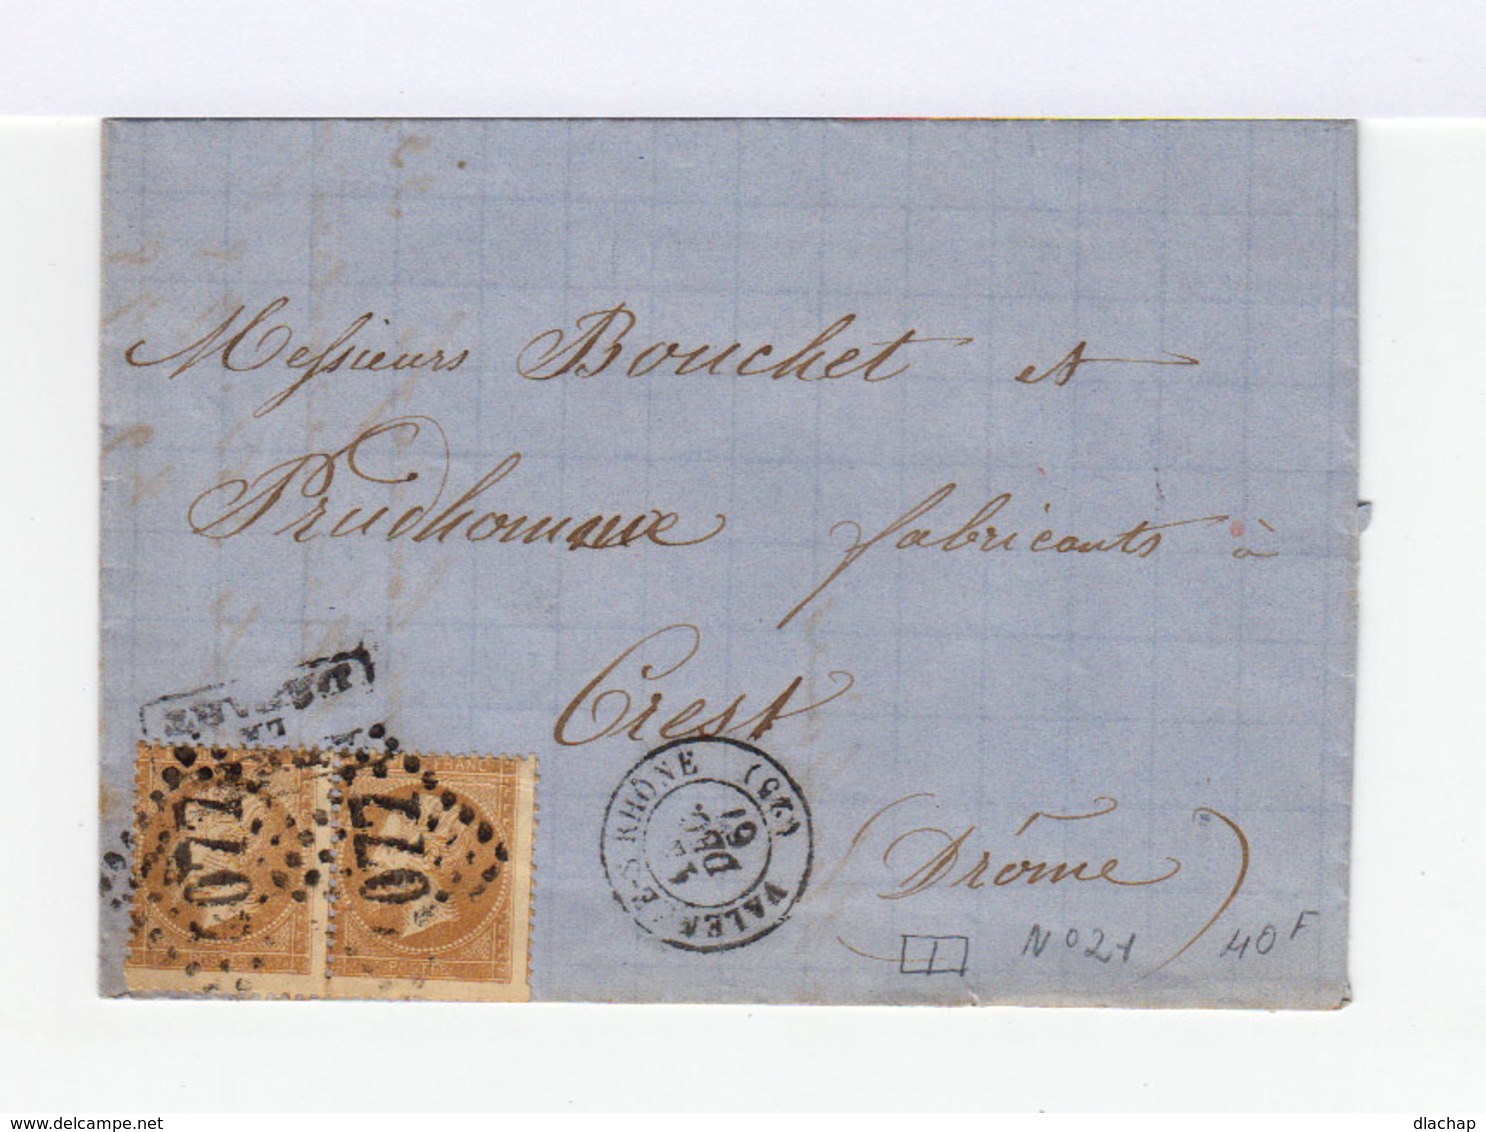 Messieurs Bouchet et
Prudhomme fabricants à
Crest
(Drôme)
APRÈS
LE
DÉPART
4077
4077
FRANC
VALENCE-S-RHÔNE (25)
DEC
67
1
N° 21
40 F
www.delcampe.net
dlachap